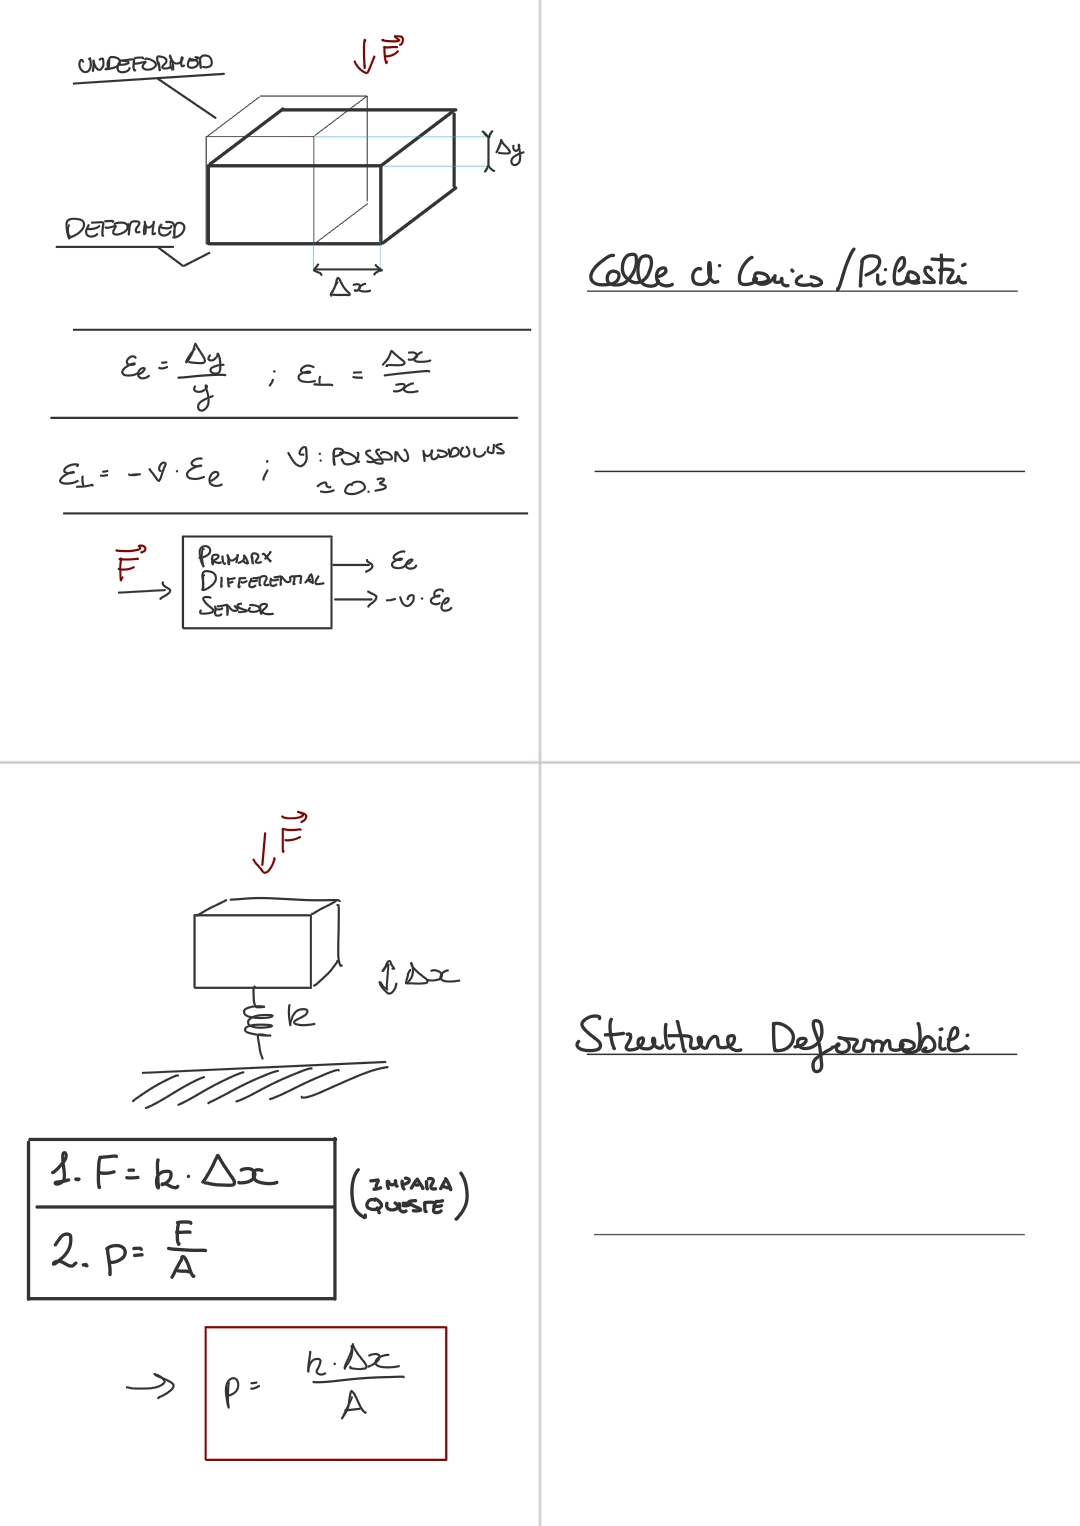 UNDEFORMED
F
Δy
DEFORMED
Δx
εe = Δy/y ; ε⊥ = Δx/x
ε⊥ = -ν · εe ; ν : POISSON MODULUS
≈ 0.3
F
PRIMARY
DIFFERENTIAL
SENSOR
εe
-ν · εe
Celle di Carico / Pilastri
F
Δx
k
1. F = k · Δx
2. P = F/A
(IMPARA
QUESTE)
⇒ P = k · Δx / A
Strutture Deformabili